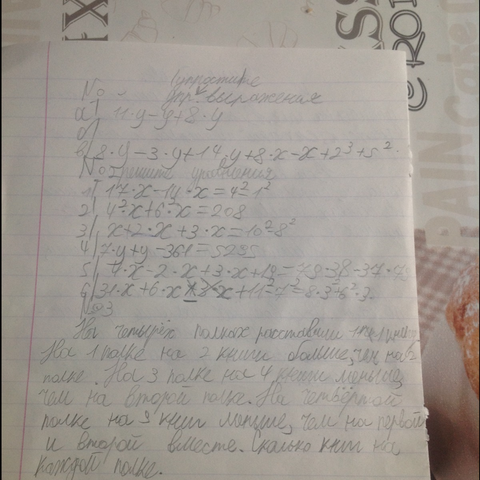 упростите
No - выражения
а) 11·y-y+8·y
б)
в) 8·y-3·y+14·y+8·x-x+2³+5².
No решите уравнения
1) 17·x-14·x=4²-1²
2) 4²·x+6·x=208
3) x+2·x+3·x=10²-8²
4) 7·y+y-361=5295
5) 4·x-2·x+3·x+19=79·38-37·79
6) 31·x+6·x 8·x+11²-7²=8·3³-6²·3.
No3
На четырёх полках расставили
На 1 полке на 2 книги больше, чем на 2
полке. На 3 полке на 4 книги меньше,
чем на второй полке. На четвёртой
полке на 3 книг меньше, чем на первой
и второй вместе. Сколько книг на
каждой полке.